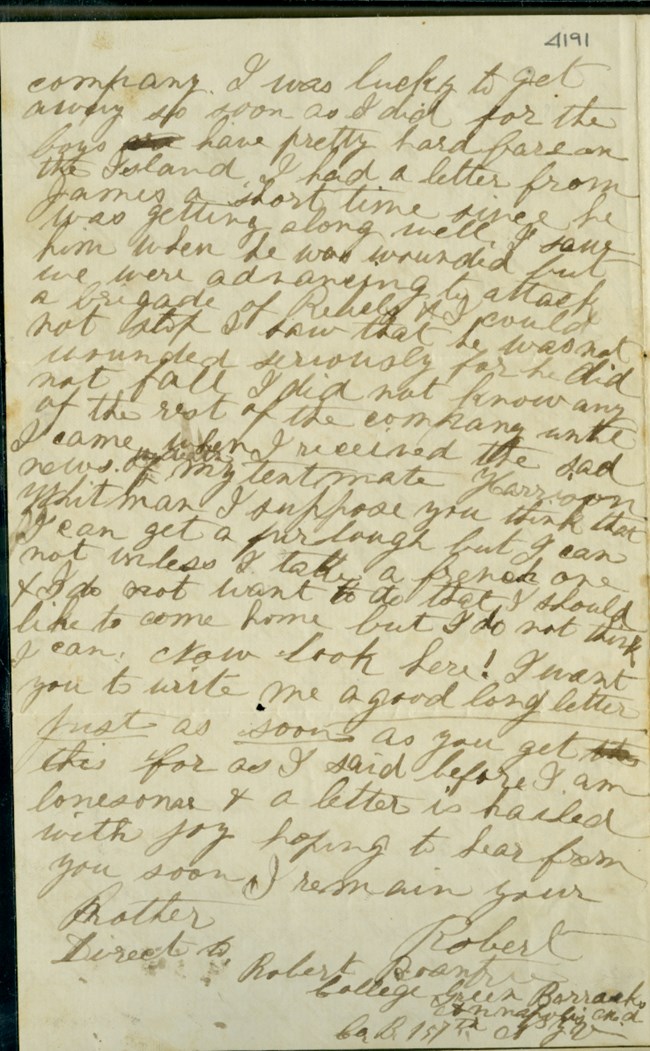 4191
company. I was lucky to get
away so soon as I did for the
boys have pretty hard fare on
the Island, I had a letter from
James a short time since he
was getting along well I saw
him when he was wounded but
we were advancing to attack
a brigade of Rebels & I could
not stop I saw that he was not
wounded seriously for he did
not fall I did not know any
of the rest of the company until
I came when I received the sad
news of my tent mate Harrison
Whitman I suppose you think that
I can get a furlough but I can
not unless I take a french one
& I do not want to do that I should
like to come home but I do not think
I can. Now look here! I want
you to write me a good long letter
just as soon as you get
this for as I said before I am
lonesome & a letter is hailed
with joy hoping to hear from
you soon, I remain your
Brother
Robert
Direct to,
Robert
College Green Barracks
Annapolis Md
Co B. 157th N Y V